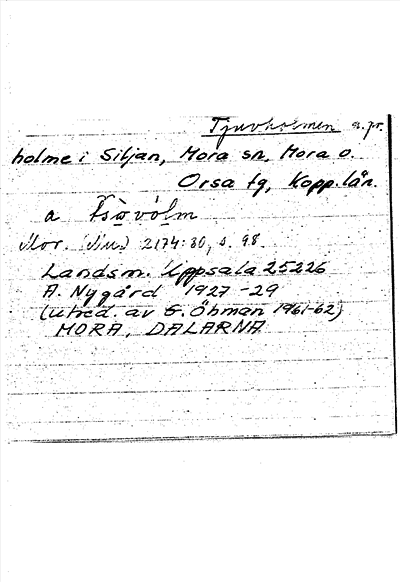 Tjuvholmen a. pr.
holme i Siljan, Mora sn, Mora o.
Orsa tg, Kopp. län.
a
Mor. 2174:80, s. 98
Landsm. Uppsala 25226
A. Nygård 1927-29
(utred. av G. Öhman 1961-62)
MORA, DALARNA